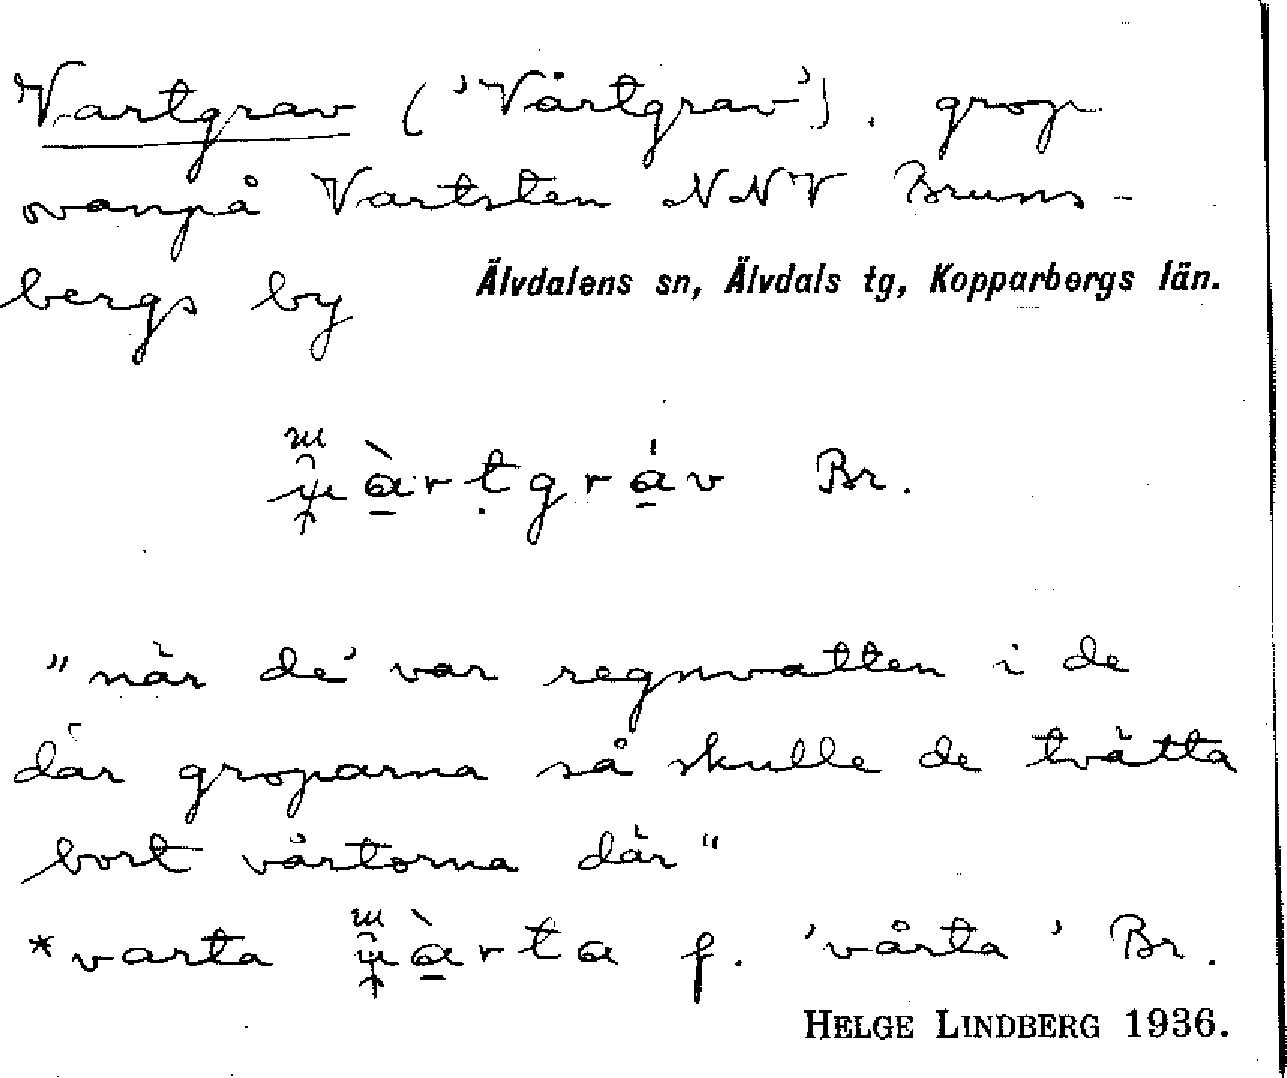 Vartgrav ('Vårtgrav'). grop
ovanpå Vartsten NNV Bruns-
bergs by Älvdalens sn, Älvdals tg, Kopparbergs län.
Br.
"när de' var regnvatten i de
där groparna så skulle de tvätta
bort vårtorna där"
*varta f. 'vårta' Br.
HELGE LINDBERG 1936.